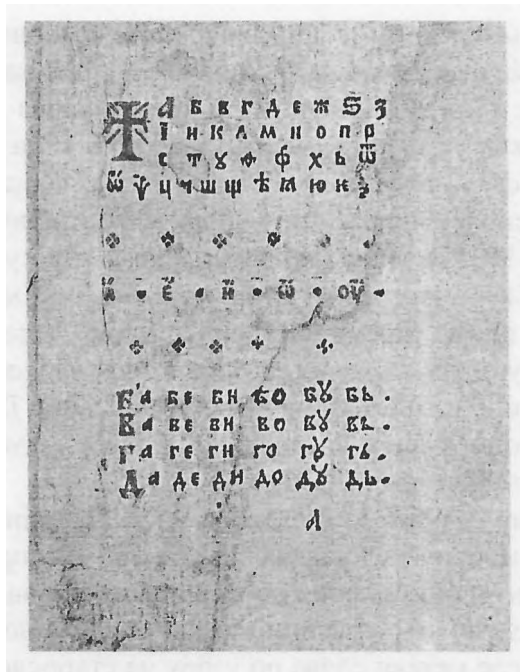 А Б В Г Д Е Ж Ѕ З
Ї И К Л М Н О П Р
С Т Ꙋ Ѳ Ф Х Ь Ѿ
Ѿ Ѱ Ц Ч Ш Щ Ѣ Ꙗ Ю Ѥ Ѯ
а҆ • е҆ • и҆ • ѡ҆ • оу҆ •
Ба бе би бо бꙋ бь.
Ва ве ви во вꙋ вь.
Га ге ги го гꙋ гь.
Да де ди до дꙋ дь.
А